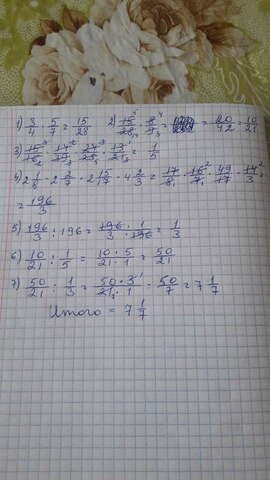 1) 3/4 · 5/7 = 15/28 2) 15/28 · 8/9 = = 20/42 = 10/21
3) 15/16 · 14/ · 24/25 · / = 1/5
4) 2 1/8 · 2 2/7 · 2 15/17 · 4 2/3 = 17/8 · 16/7 · 49/17 · 14/3 =
= 196/3
5) 196/3 : 196 = 196 · 1/3 · 196 = 1/3
6) 10/21 : 1/5 = 10 · 5/21 · 1 = 50/21
7) 50/21 : 1/3 = 50 · 3/21 · 1 = 50/7 = 7 1/7
Итого = 7 1/7